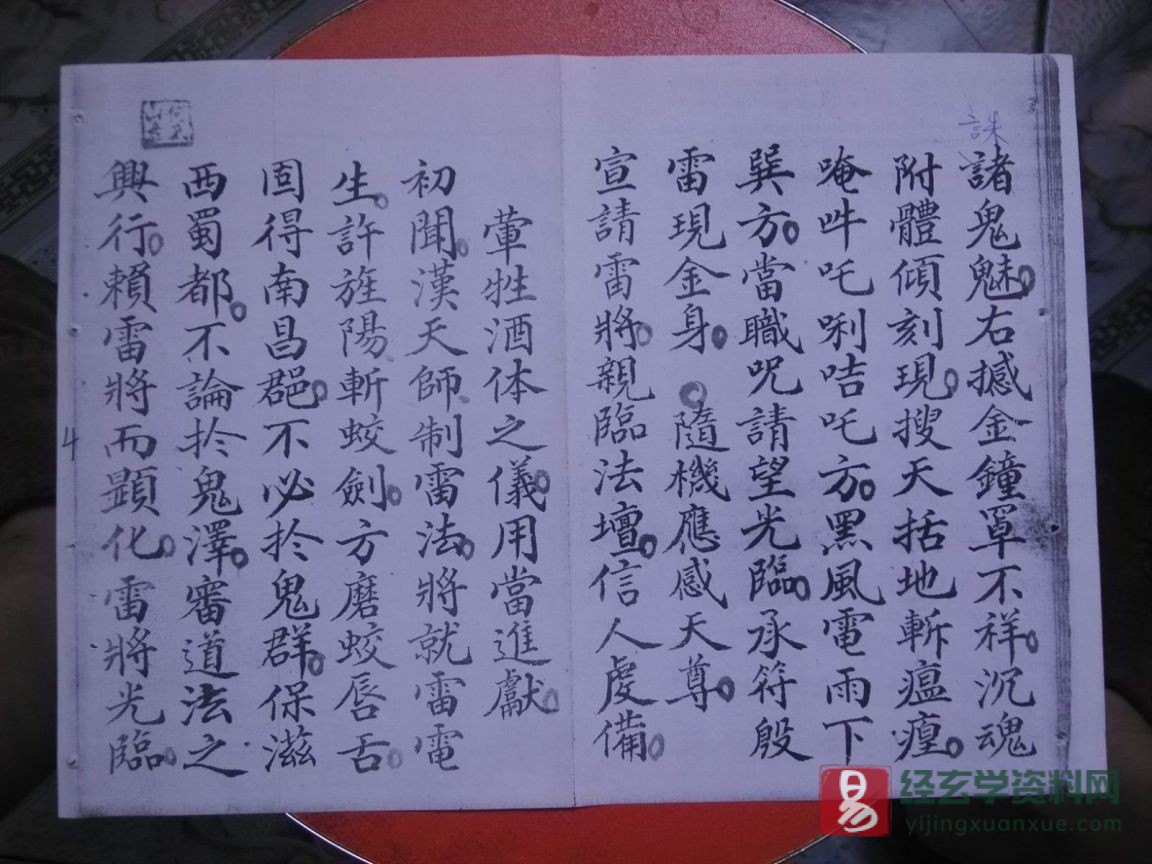 誅
諸鬼魅。右撼金鐘罩不祥。沉魂
附體傾刻現。搜天括地斬瘟瘽。
唵吽吒唎咭吒方。黑風電雨下
巽方。當職咒請望光臨。承符殷
雷現金身。隨機應感天尊。
宣請雷將。親臨法壇。信人虔備。
葷牲酒体之儀。用當進獻。
初聞。漢天師制雷法。將就雷電
生。許旌陽斬蛟劍。方磨蛟唇舌。
固得南昌郡。不必扵鬼群。保滋
西蜀都。不論扵鬼澤。審道法之
興行。賴雷將而顕化。雷將光臨。
4
易
经玄学资料网
yijingxuanxue.com